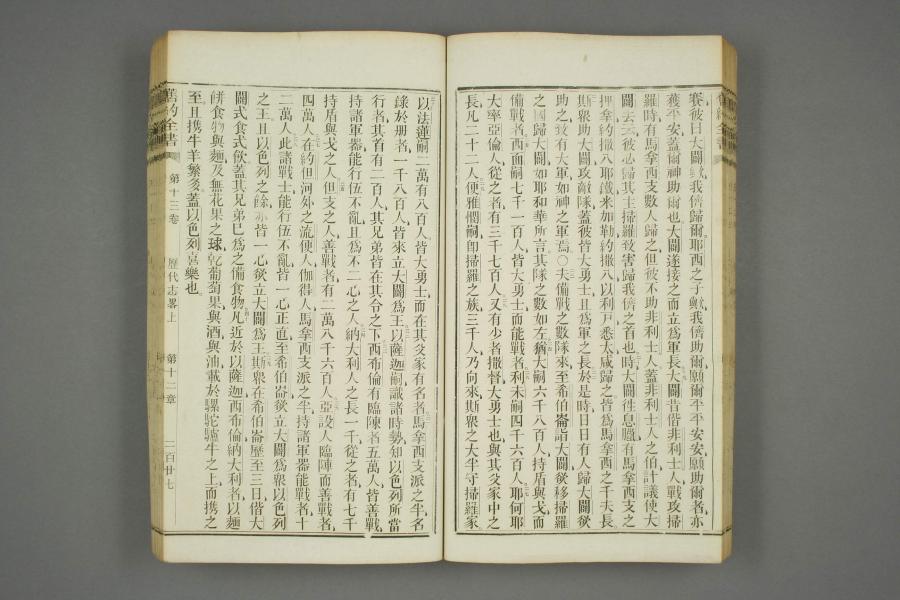 賽彼曰大闢歟我儕歸爾耶西之子歟我儕助爾願爾平平安安願助爾者亦
獲平安蓋爾神助爾也大闢遂接之而立爲軍長大闢昔偕非利士人戰攻掃
羅時有馬拿西支數人歸之但彼不助非利士人蓋非利士人之伯計議使大
闢去云彼必歸其主掃羅致害我儕之首也時大闢徃息臘有馬拿西支之
押拿約撒八耶鐵米加勒約撒八以利戸悉太咸歸之皆爲馬拿西之千夫長
斯衆助大闢攻敵隊蓋彼皆大勇士且爲軍之長於是時日日有人歸大闢欲
助之致有大軍如神之軍焉〇夫備戰之數隊來至希伯崙詣大闢欲移掃羅
之國歸大闢如耶和華所言其隊之數如左猶大嗣六千八百人持盾與戈而
備戰者西面嗣七千一百人皆大勇士而能戰者利未嗣四千六百人耶何耶
大率亞倫人從之者有三千七百人又有少者撒督大勇士也與其父家中之
長凡二十二人便雅憫嗣卽掃羅之族三千人乃向來斯衆之大半守掃羅家
以法蓮嗣二萬有八百人皆大勇士而在其父家有名者馬拿西支派之半名
錄於册者一千八百人皆來立大闢爲王以薩迦嗣識諸時勢知以色列所當
行者其首有二百人其兄弟皆在其令之下西布倫有臨陣者五萬人皆善戰
持諸軍器能行伍不亂且爲不二心之人納大利人之長一千從之者有七千
持盾與戈之人但支之人善戰者有二萬八千六百人亞設人臨陣而善戰者
四萬人在約但河外之流便人伽得人馬拿西支派之半持諸軍器能戰者十
二萬人此諸戰士能行伍不亂皆一心正直至希伯崙欲立大闢爲衆以色列
之王且以色列之餘亦皆一心欲立大闢爲王斯衆在希伯崙歷至三日偕大
闢式食式飲蓋其兄弟已爲之備食物凡近於以薩迦西布倫納大利者以麵
餅食物與麵及無花果之球乾葡萄果與酒與油載於騾駝驢牛之上而攜之
至且攜牛羊繁多蓋以色列喜樂也
舊約全書 第十三卷 歷代志畧上 第十二章 二百廿七